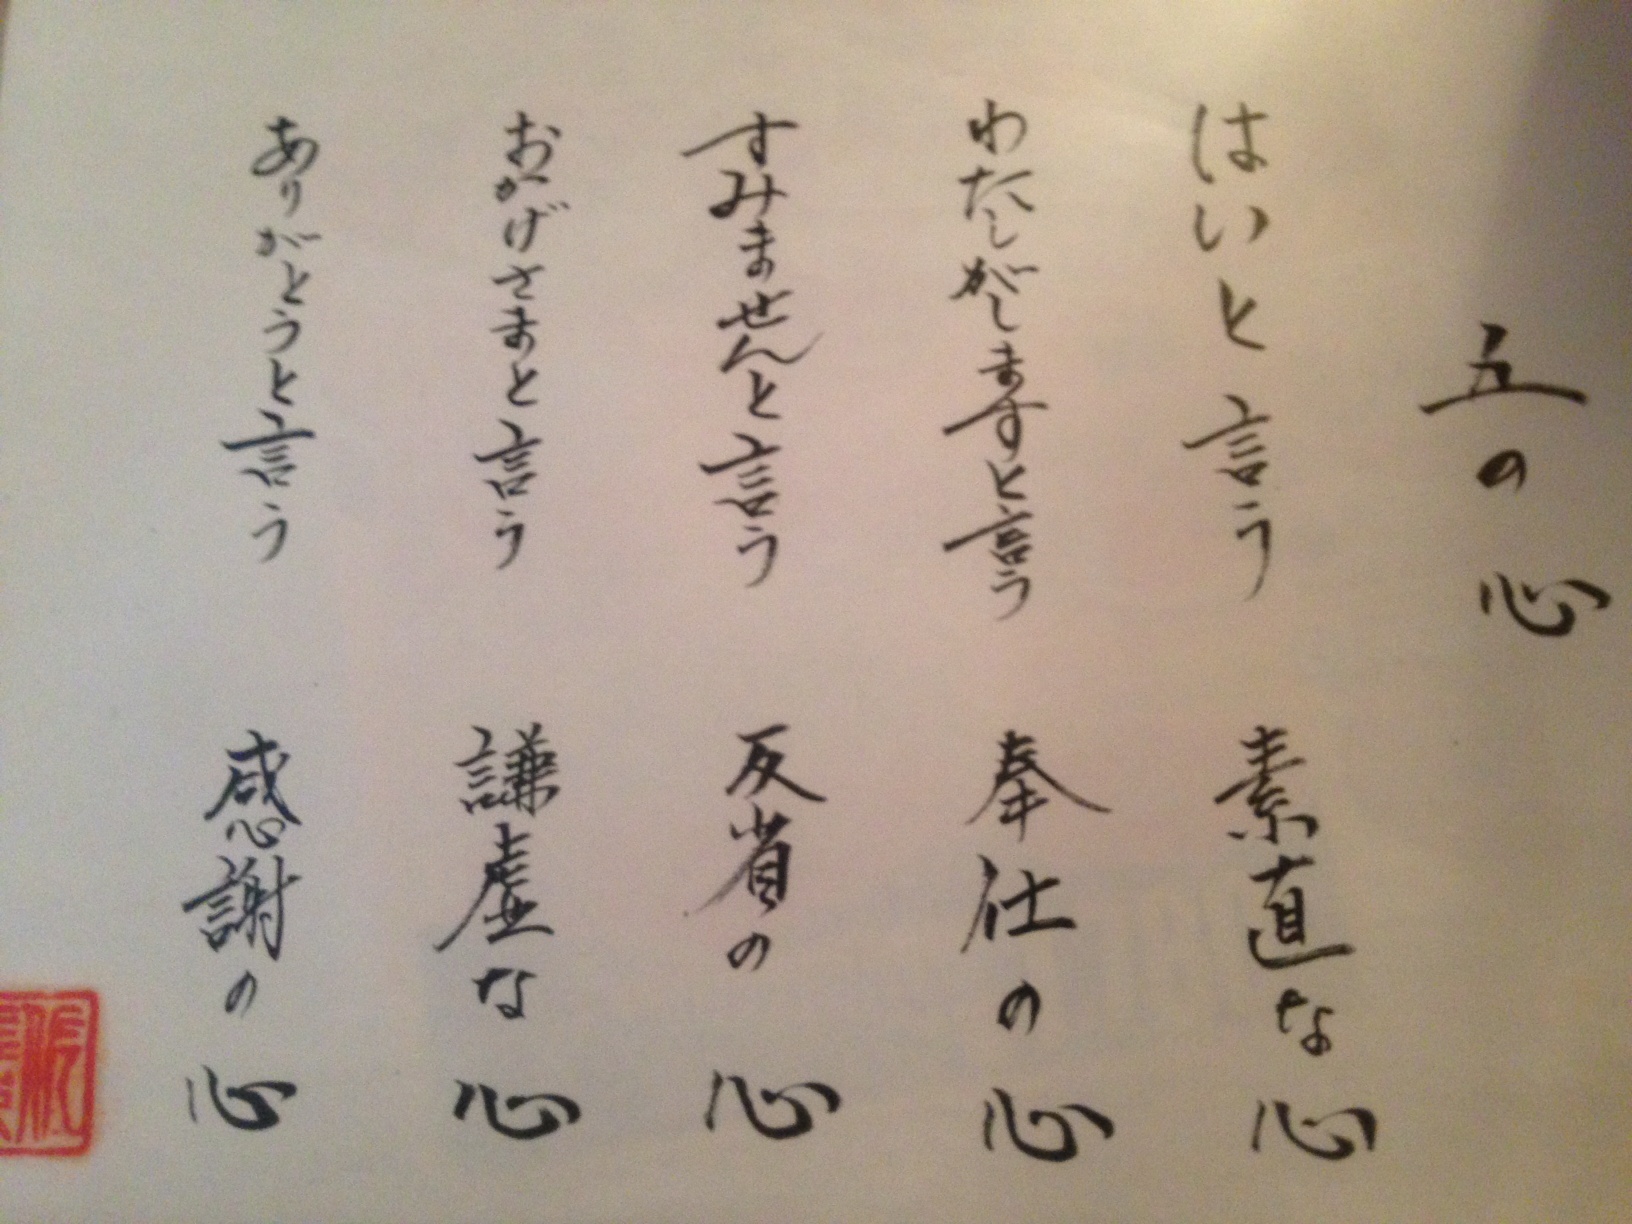 五の心
はいと言う 素直な心
わたしがしますと言う 奉仕の心
すみませんと言う 反省の心
おかげさまと言う 謙虚な心
ありがとうと言う 感謝の心